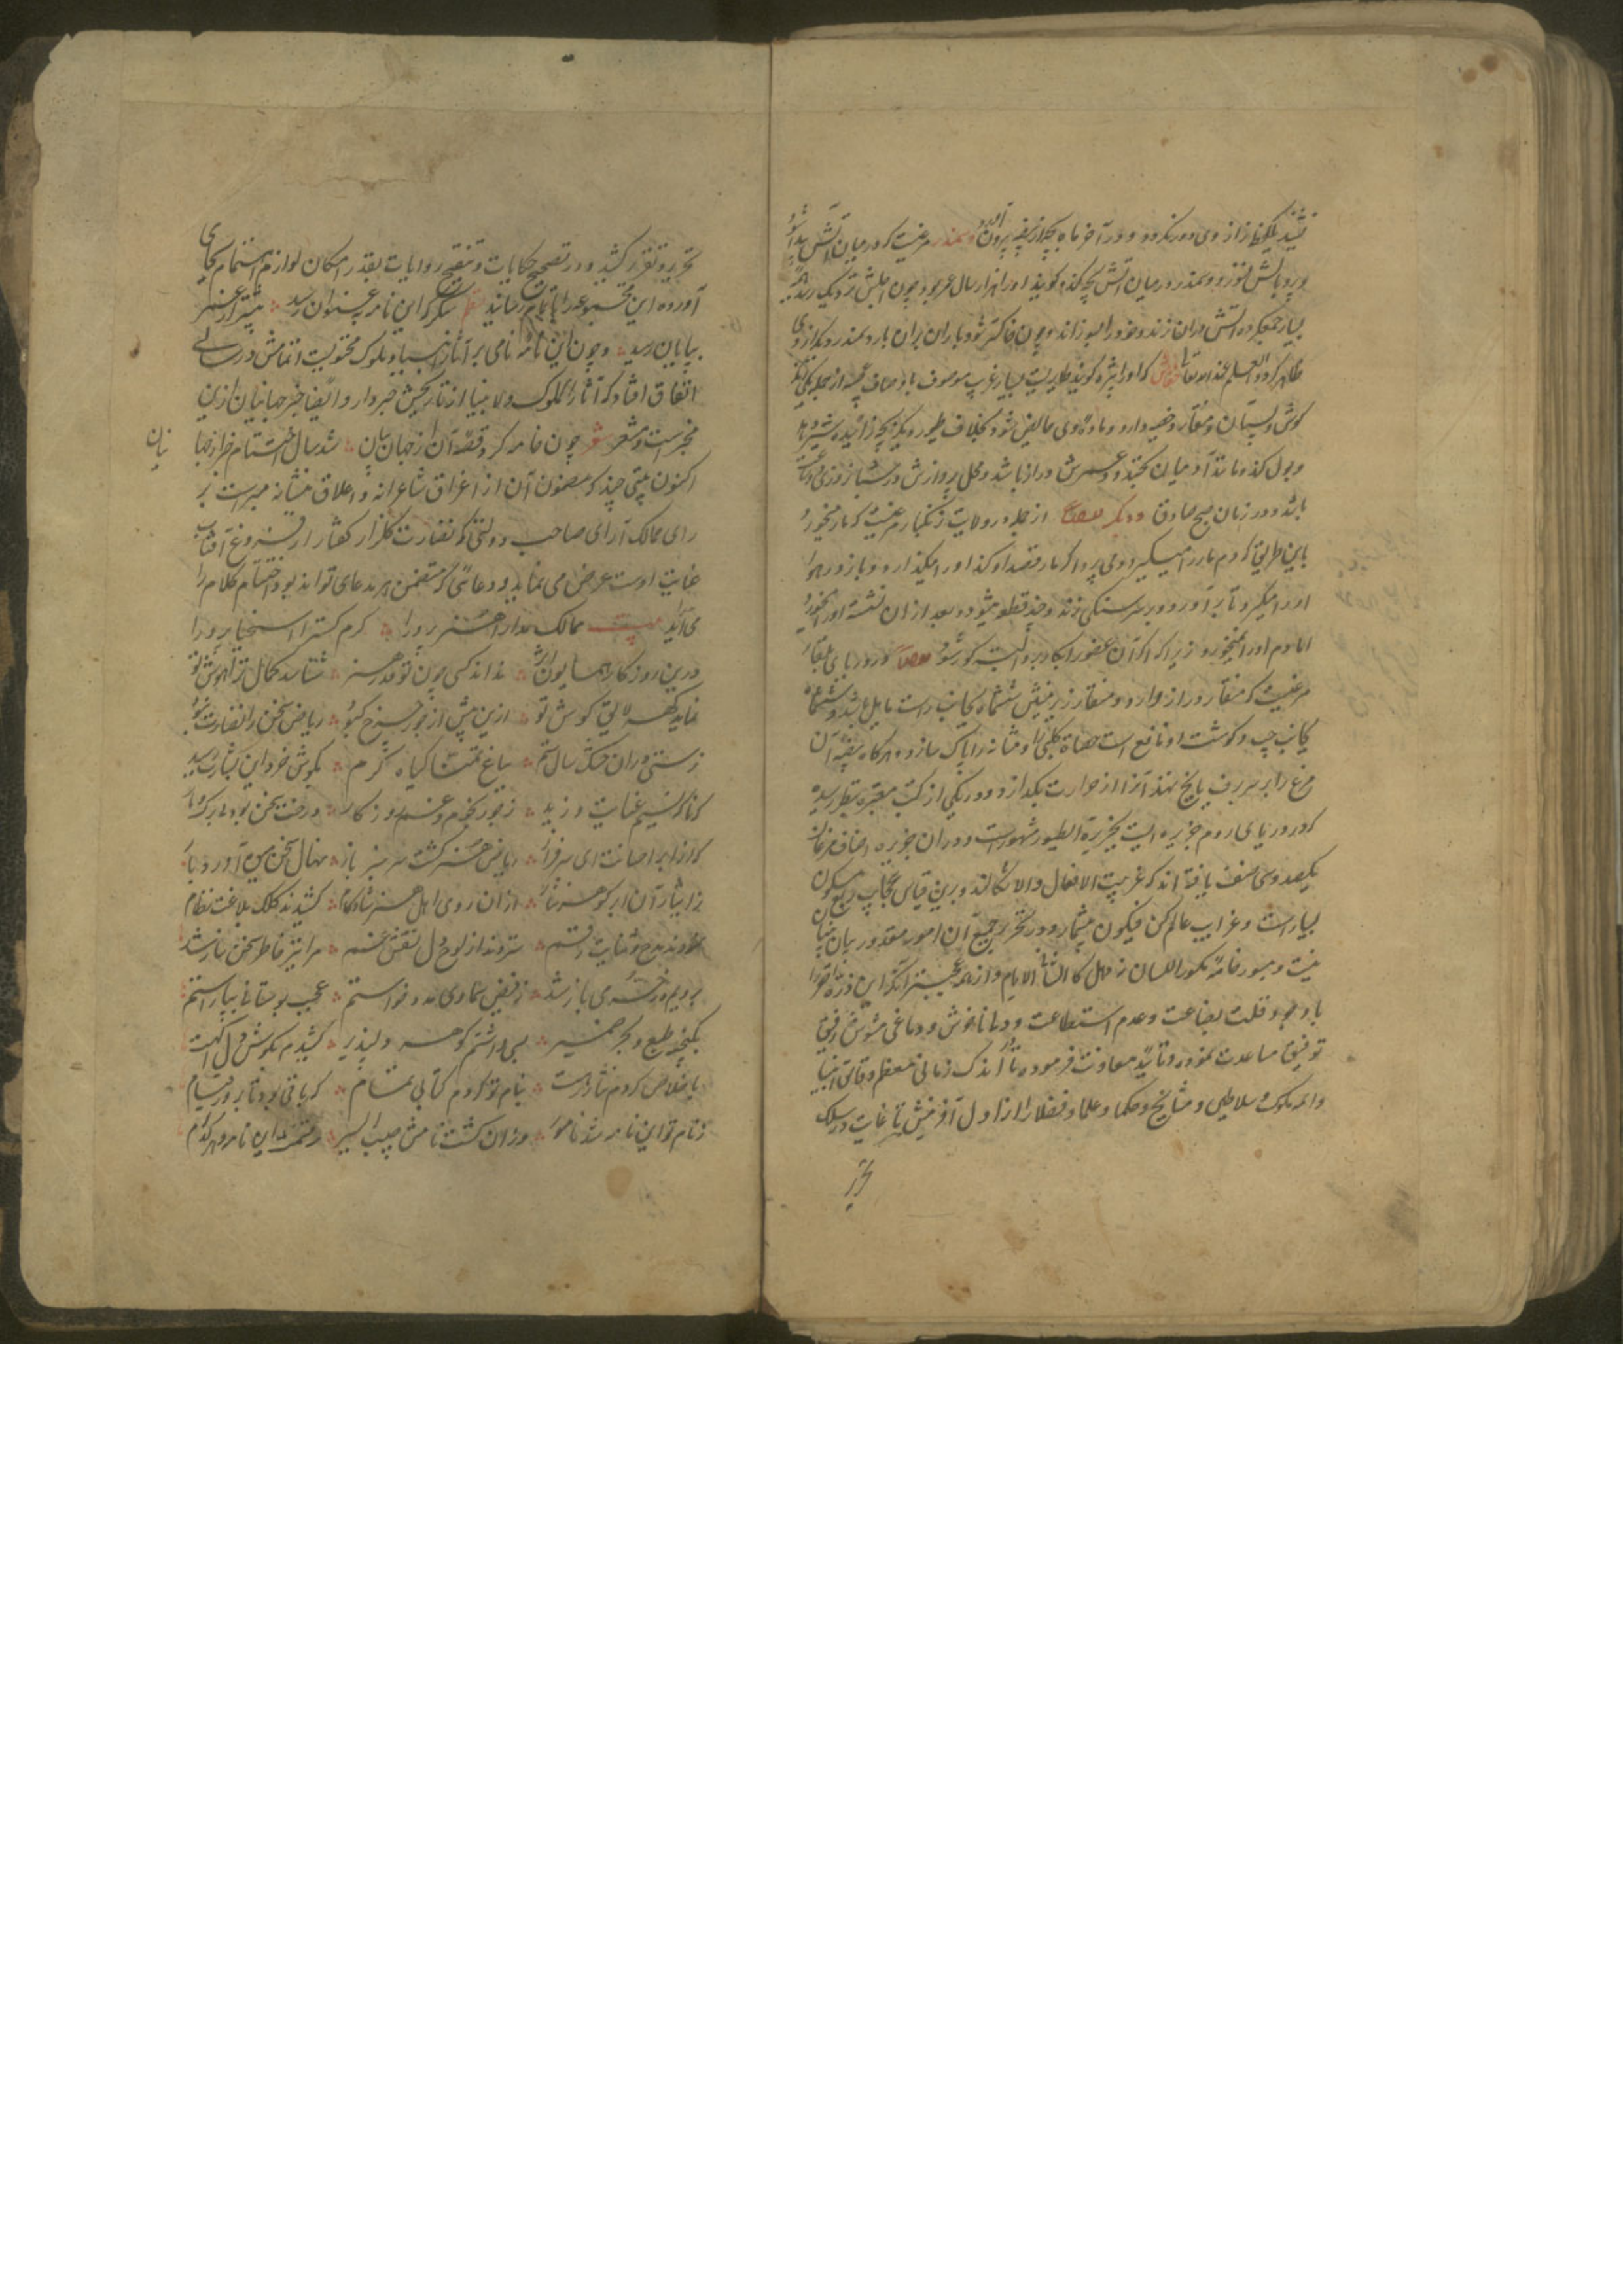 نشیند یک لحظه از وی دور نگردد و در آخر ماه بچه از بیضه بیرون آید و سمندر مرغیست که در میان آتش پیدا شود
و پر و بالش نسوزد و سمندر در میان آتش بچه کند گویند او را هزار سال عمر بود و چون اجلش نزدیک رسد
بسیار جمع کرده آتش دران زند و خود را بسوزاند و چون خاکستر شود باران بران بارد سمندر دیگر از وی
ظاهر گردد و العلم عند الله تعالی خفاش که او را شب پره گویند طایریست بسیار غریب موصوف باوصاف عجیبه از جمله
گوش و پستان و منقار و خصیه دارد و ماده وی حایض شود بخلاف طیور دیگر بچه زائیده شیر دهد
و بول کند مانند آدمیان بخندد و عمرش دراز باشد و محل پروازش در شبانروزی
باشد و در زمان صبح صادق و دیگر ایضا از جمله در ولایت زنگبار مرغیست که مار میخورد
باین طریق که دم مار را میگیرد و می پرد اگر مار قصد او کند او را میگذارد و باز در هوا
او را میگیرد تا بر آورد و بر سنگی زند و چند قطعه میشود و بعد از ان نشسته او را میخورد
اما دم او را نمیخورد زیرا که اگر آن عضو را بکار برد البته کور شود ایضا در دریای بلغار
مرغیست که منقار دراز دارد و منقار زیرینش ششماه بجانب راست مایل باشد و ششماه
بجانب چپ و گوشت او نافع است حصاة کلیه را و مثانه را پاک سازد و هرگاه بیضه آن
مرغ را بر سر برف یا یخ نهند آنرا از حرارت بگدازد و در یکی از کتب معتبره بنظر رسیده
که در دریای روم جزیره ایست بجزیرة الطیور مشهور است و دران جزیره اصناف مرغان
یکصد و سی صنف یافته اند که غریب الافعال والاشکالند و برین قیاس عجایب ربع مسکون
بسیار است و غرایب عالم کن فیکون بیشمار و در تحریر جمیع آن امور مقدور بیان
نیست و میسور خامهٔ مکسور اللسان نه
با وجود قلت بضاعت و عدم استطاعت و دلی ناخوش و دماغی مشوش رفیق
توفیق مساعدت نمود و تایید معاونت فرموده تا در اندک زمانی معظم وقایع انبیا
و ائمه ملوک و سلاطین و مشایخ و حکما و علما و فضلا را از اول آفرینش تا غایت در سلک
تحریر
تحریر و تقریر کشید و در تصحیح حکایات و تنقیح روایات بقدر امکان لوازم اهتمام بجای
آورده این مجموعه را باتمام رسانید شکر که این نامه بعنوان رسید پیشتر از عمر
بپایان رسید و چون این نامهٔ نامی بر آثار انبیا و ملوک محتویست اتمامش در سالی
اتفاق افتاد که آثار الملوک والانبیا از تاریخش خبردار و ایضا خبر جهانیان ازین
مخبر است و مشعر شعر چون خامه کرد قصه آن از جهان بیان شد سال اختتام خبر از جها
نیان
اکنون بیتی چند که مضمون آن از اغراق شاعرانه و اغلاق منشیانه مبراست بر
رای ممالک آرای صاحب دولتی که نضارت گلزار گفتار از فروغ آفتاب
عنایت اوست عرض می نماید و دعائی که متضمن هر مدعای تواند بود اختتام کلام را
می آراید بیت ممالک مدارا هنر پرورا کرم گسترا سخنیا پرورا
درین روزگار همایون اثر نداند کسی چون تو قدر هنر شناسد کمال ترا هوش تو
نماید گهر لایق گوش تو ازین پیش از جور چرخ کبود ریاض سخن را نضارت نبود
ز سستی دران خشک سال ستم بباغ تمنا گیاه کرم بگوش خرد این بشارت رسید
که ناگه نسیم عنایت وزید ز جور نجوم و غم روزگار درخت سخن بود بی برگ و بار
که از ابر احسانت ای سرفراز ریاض هنر گشت سرسبز باز نهال سخن بین آورد بار
ز ایثار آن ابر گوهر نثار از ان روی اهل هنر شادکام کشیدند کلک بلاغت نظام
نمودند مدح و ثنایت رقم ستردند از لوح دل نقش غم مرا نیز خاطر سخن ساز شد
برویم در خرمی باز شد ز فیض سماوی مدد خواستم عجب بوستانی بیاراستم
بگنجور طبع و بحر ضمیر بسی داشتم گوهر دلپذیر کشیدم بگوش دل آگهت
باخلاص کردم نثار رهت بنام تو کردم کتابی تمام که باقی بود تا بروز قیام
ز نام تو این نامه شد نامور وزان گشت نامش حبیب السیر